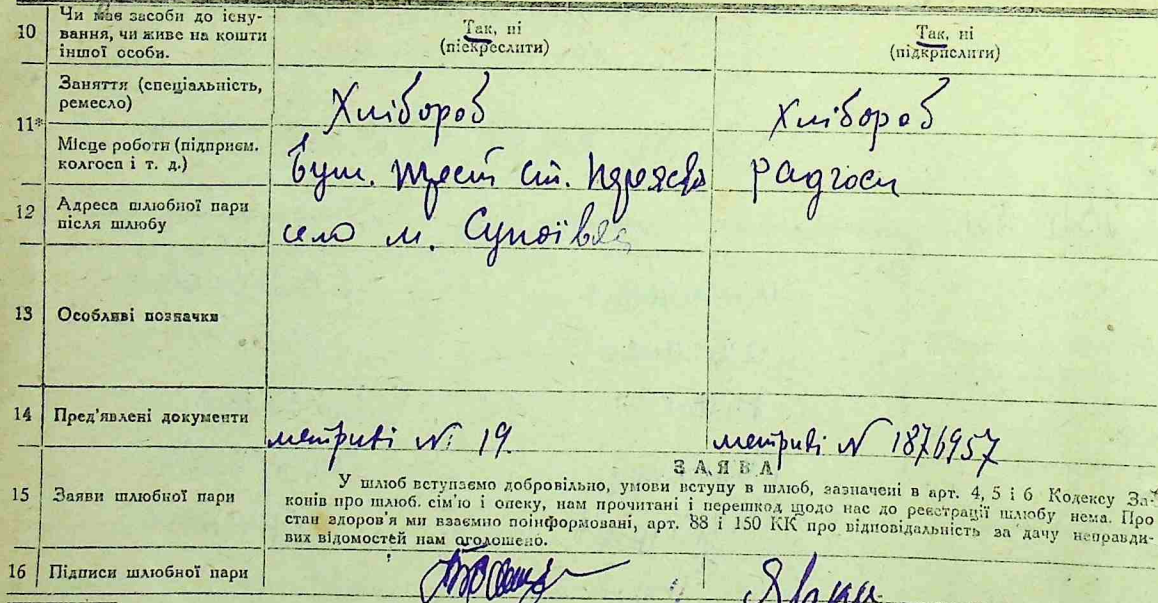 10 Чи має засоби до існування, чи живе на кошти іншої особи. Так, ні (підкреслити) Так, ні (підкрислити)
11* Заняття (спеціальність, ремесло) Хлібороб Хлібороб
Місце роботи (підприєм. колгосп і т. д.) ст. радгосп
12 Адреса шлюбної пари після шлюбу село м. Супоївка
13 Особливі позначки
14 Пред'явлені документи метриві №: 19. метриві № 1876957
ЗАЯВА
15 Заяви шлюбної пари У шлюб вступаємо добровільно, умови вступу в шлюб, зазначені в арт. 4, 5 і 6 Кодексу За-
конів про шлюб. сім'ю і опеку, нам прочитані і перешкод щодо нас до реєстрації шлюбу нема. Про
стан здоров'я ми взаємно поінформовані, арт. 88 і 150 КК про відповідальність за дачу неправди-
вих відомостей нам оголошено.
16 Підписи шлюбної пари